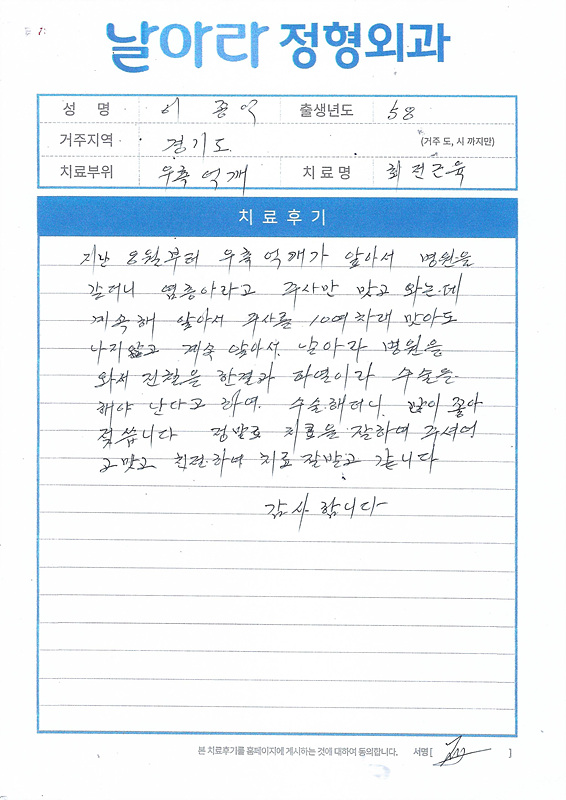 날아라 정형외과
성 명 이종억 출생년도 58
거주지역 경기도 (거주 도, 시 까지만)
치료부위 우측 억개 치료명 회전근육
치료후기
지난 8월부터 우측 억깨가 앞아서 병원을
갈더니 염증아라고 주사만 맞고 와는데
계속해 앞아서 주사를 10여차래 맛아도
나지않고 계속 앞아서 날아라 병원을
와서 진찰을 한결과 파열이라 수술을
해야 난다고 하여. 수술.해더니. 많이 좋아
젔씁니다 정말로 치료을 잘하여 주셔여
고맛고 친절.하여 치료 잘받고 갑니다
감사 합니다
본 치료후기를 홈페이지에 게시하는 것에 대하여 동의합니다. 서명 [ ]